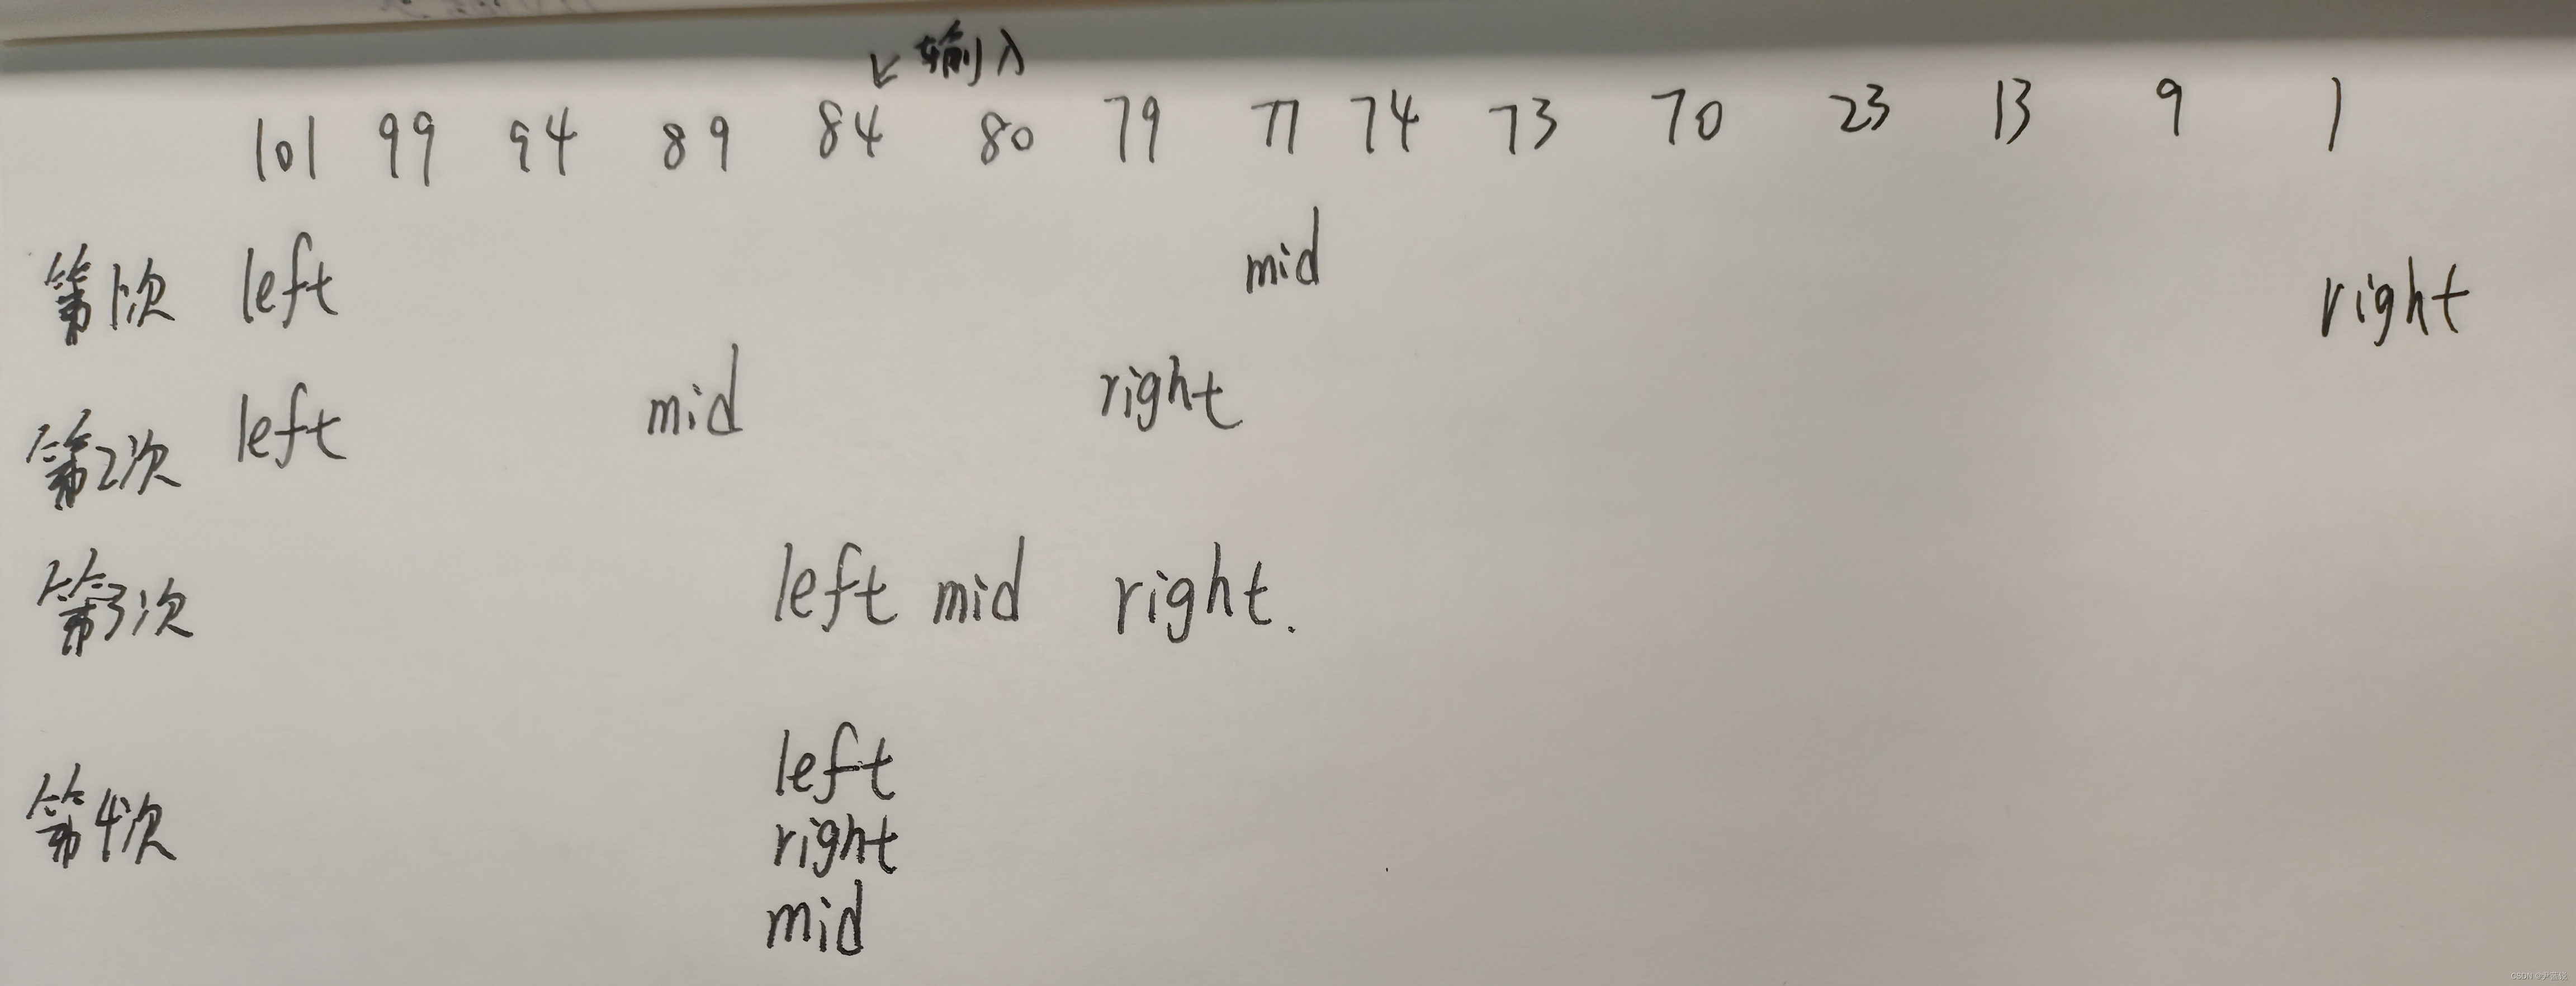 输入
101 99 94 89 84 80 79 77 74 73 70 23 13 9 1
第1次 left mid right
第2次 left mid right
第3次 left mid right.
第4次 left
right
mid